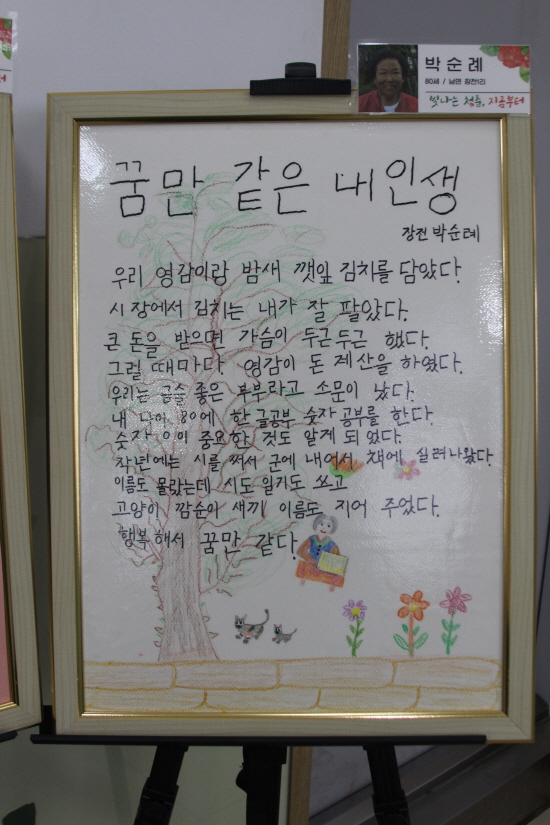 박순례
80세 / 남면 장전1리
빛나는 청춘, 지금부터
꿈만 같은 내 인생
장전 박순례
우리 영감이랑 밤새 깻잎 김치를 담았다.
시장에서 김치는 내가 잘 팔았다.
큰 돈을 받으면 가슴이 두근두근 했다.
그럴 때마다 영감이 돈 계산을 하였다.
우리는 금슬 좋은 부부라고 소문이 났다.
내 나이 80에 한글공부 숫자공부를 한다.
숫자 0이 중요한 것도 알게 되었다.
작년에는 시를 써서 군에 내어서 책에 실려나왔다.
이름도 몰랐는데 시도 일기도 쓰고
고양이 깜순이 새끼 이름도 지어 주었다.
행복해서 꿈만 같다.